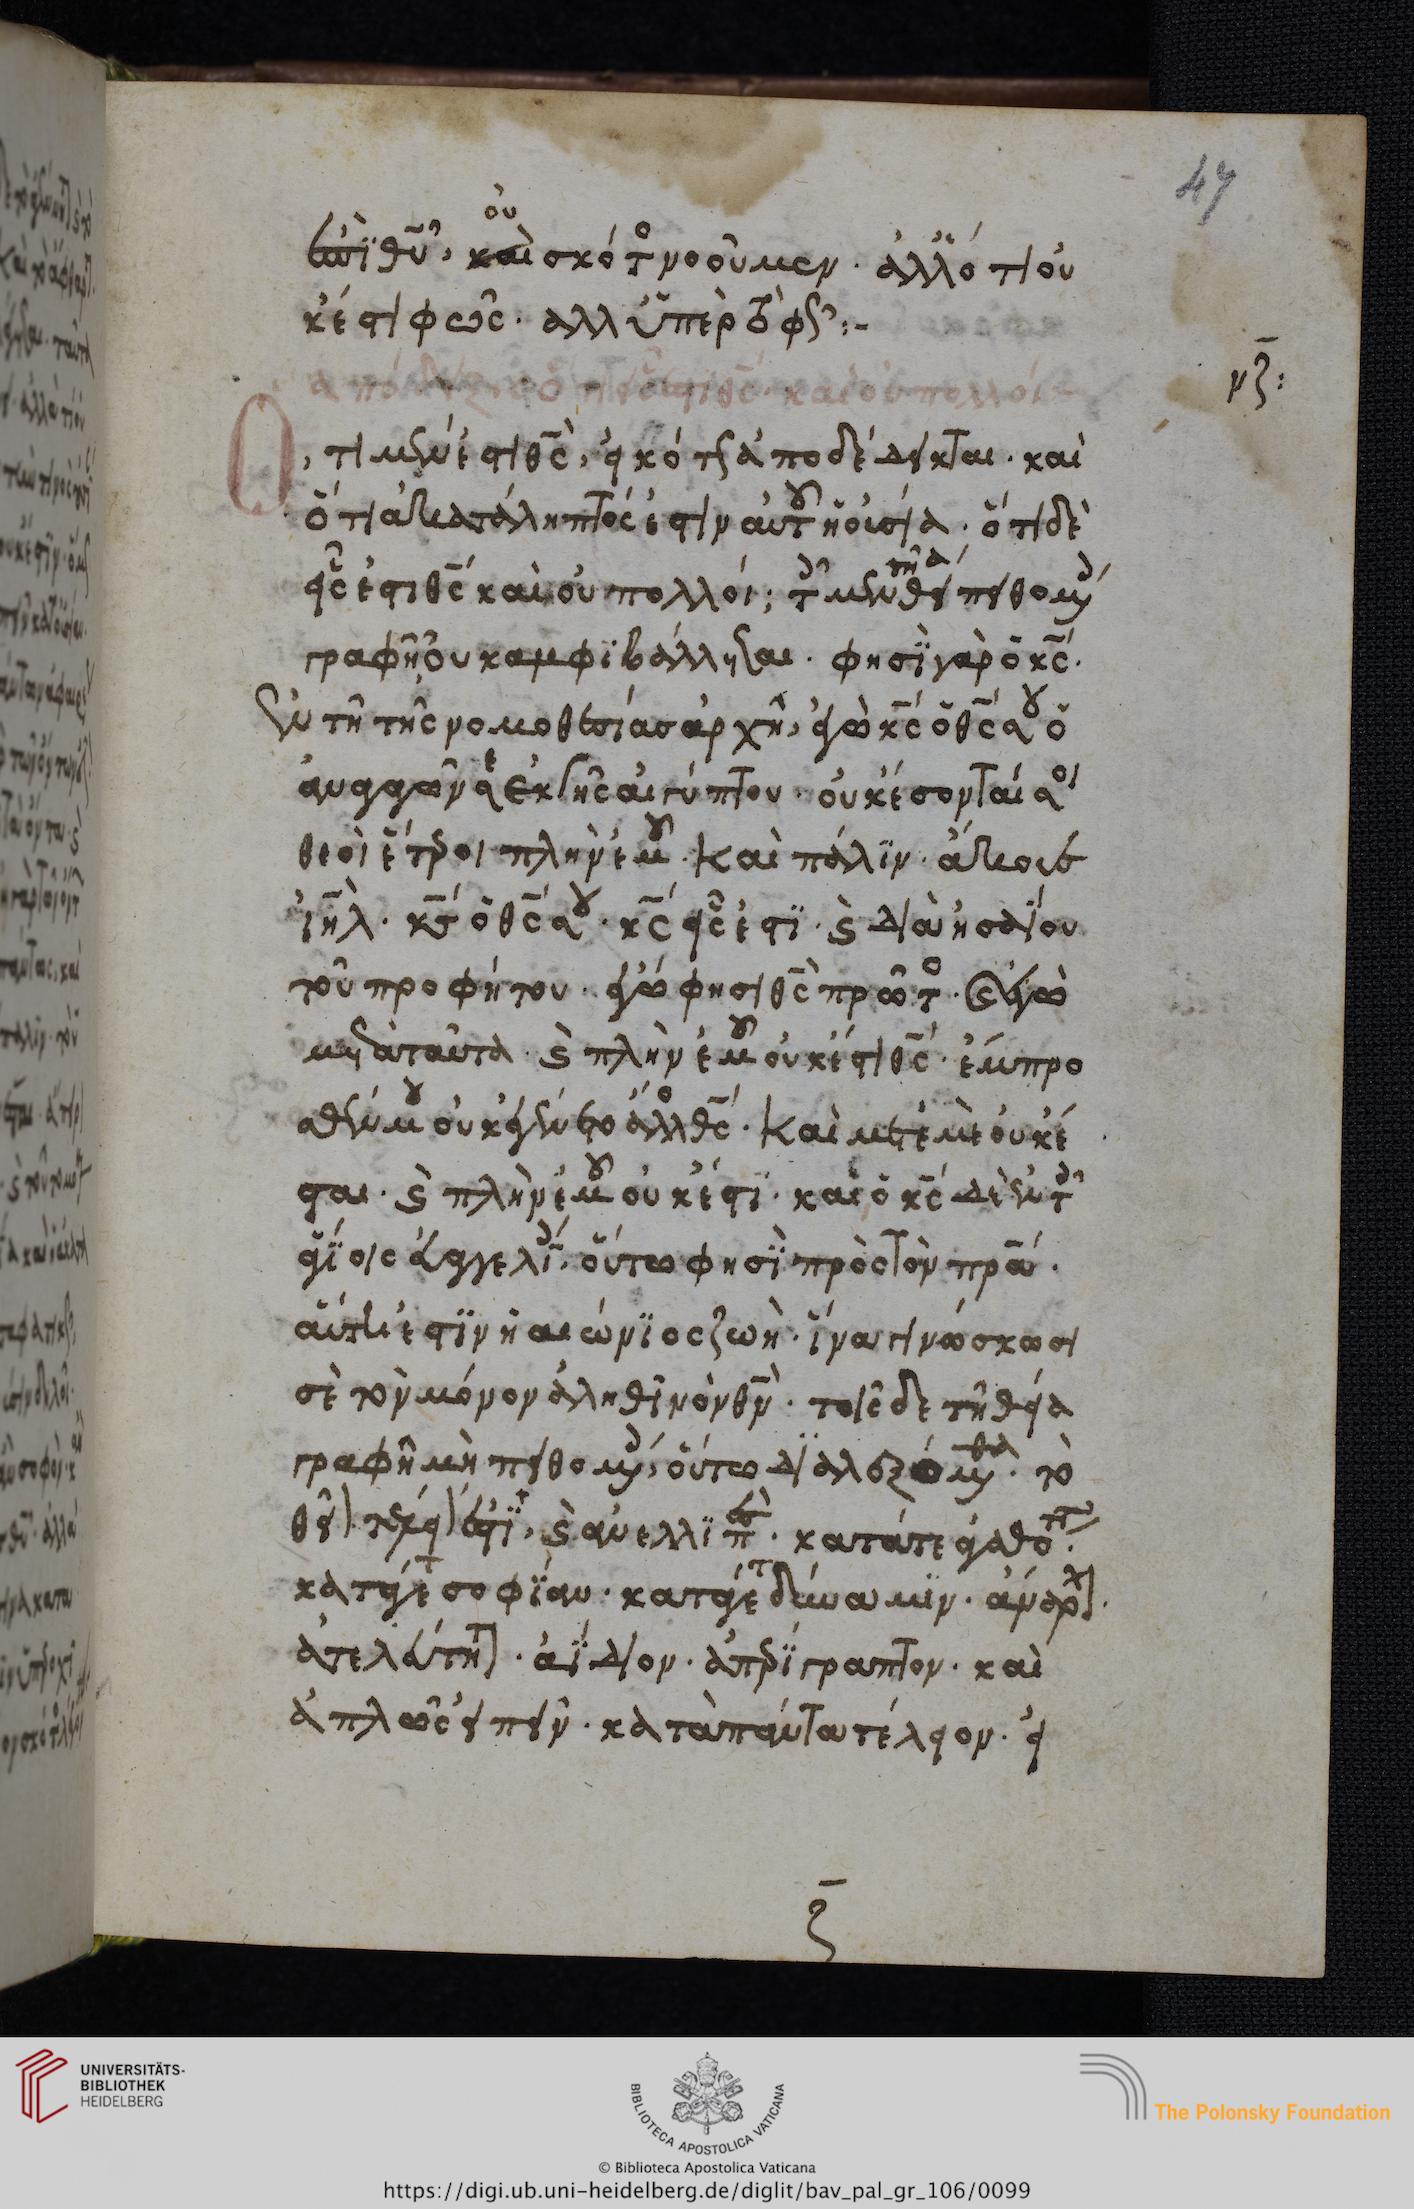 47
ἐπὶ θῦ, καὶ οὐ σκότος νοοῦμεν· ἀλλ' ὅτι οὐ
κέστι φῶς· ἀλλ' ὑπὲρ τὸ φῶς:-
ἀπόδειξις ὅτι εἷς ἐστι θς καὶ οὐ πολλοί:-
νζ:
Ὅτι μὲν ἔστι θς, ἱκανῶς ἀποδέδεικται· καὶ
ὅτι ἀκατάληπτός ἐστιν αὐτοῦ ἡ οὐσία· ὅτι δὲ
εἷς ἐστι θς καὶ οὐ πολλοί; τοῖς μὲν τῇ θείᾳ πειθομένοις
γραφῇ οὐκ ἀμφιβάλλεται· φησὶ γὰρ ὁ κς·
ἐν τῇ τῆς νομοθεσίας ἀρχῇ, ἐγὼ κς ὁ θς σου ὁ
ἐξαγαγών σε ἐκ γῆς αἰγύπτου· οὐκ ἔσονταί σοι
θεοὶ ἕτεροι πλὴν ἐμοῦ. Καὶ πάλιν· ἄκουε
ιηλ· κς ὁ θς σου· κς εἷς ἐστι· καὶ διὰ ἡσαΐου
τοῦ προφήτου· ἐγώ φησι θς πρῶτος· καὶ ἐγὼ
μετὰ ταῦτα· καὶ πλὴν ἐμοῦ οὐκ ἔστι θς· ἔμπρο
σθέν μου οὐκ ἐγένετο ἄλλος θς· Καὶ μετ' ἐμὲ οὐκ ἔ
σται· καὶ πλὴν ἐμοῦ οὐκ ἔστι· καὶ ὁ κς δὲ ἐν τοῖς
εὐαγγελίοις, οὕτω φησὶ πρὸς τὸν πρα·
αὕτη ἐστὶν ἡ αἰώνιος ζωή· ἵνα γινώσκωσι
σὲ τὸν μόνον ἀληθινὸν θν· τοῖς δὲ τῇ θείᾳ
γραφῇ μὴ πειθομένοις, οὕτω διαλεξόμεθα· τὸ
θεῖον τέλειόν ἐστι, καὶ ἀνελλιπὲς· κατά τε ἀγαθότητα·
κατά τε σοφίαν· κατά τε δύναμιν· ἄναρχον·
ἀτελεύτητον· ἀΐδιον· ἀπερίγραπτον· καὶ
ἁπλῶς εἰπεῖν· κατὰ πάντα τέλειον· εἰ
ζ
UNIVERSITÄTS-
BIBLIOTHEK
HEIDELBERG
BIBLIOTECA APOSTOLICA VATICANA
The Polonsky Foundation
© Biblioteca Apostolica Vaticana
https://digi.ub.uni-heidelberg.de/diglit/bav_pal_gr_106/0099